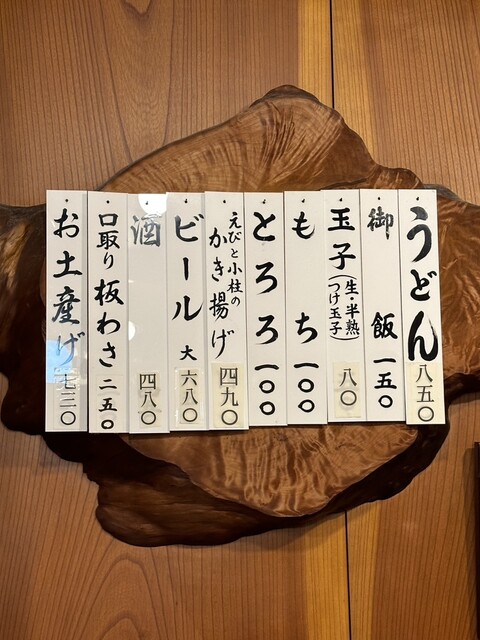 うどん 八五〇
御飯 一五〇
玉子(生・半熟 つけ玉子) 八〇
もち 一〇〇
とろろ 一〇〇
えびと小柱の
かき揚げ 四九〇
ビール 大 六八〇
酒 四八〇
口取り 板わさ 二五〇
お土産げ 七三〇